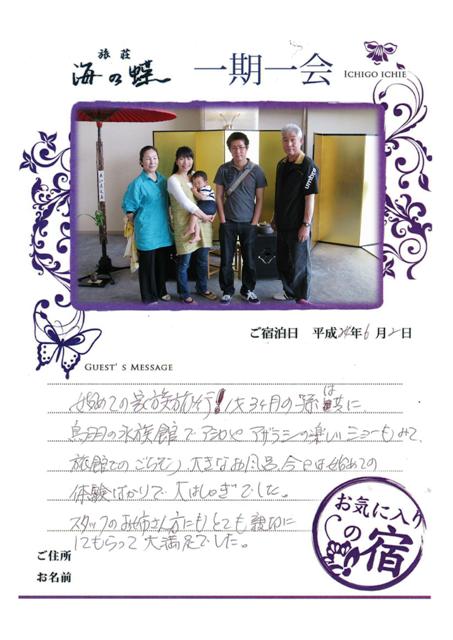 旅荘
海の蝶
一期一会
ICHIGO ICHIE
umbro
ご宿泊日 平成24年6月2日
GUEST'S MESSAGE
始めての家族旅行!1才3ヶ月の
鳥羽の水族館でアシカやアザラシの楽しいショーもみて、
旅館でのごちそう、大きなお風呂、今日は始めての
体験ばかりで大はしゃぎでした。
スタッフのお姉さん方にもとても親切に
してもらって大満足でした。
お気に入り
の宿
ご住所
お名前